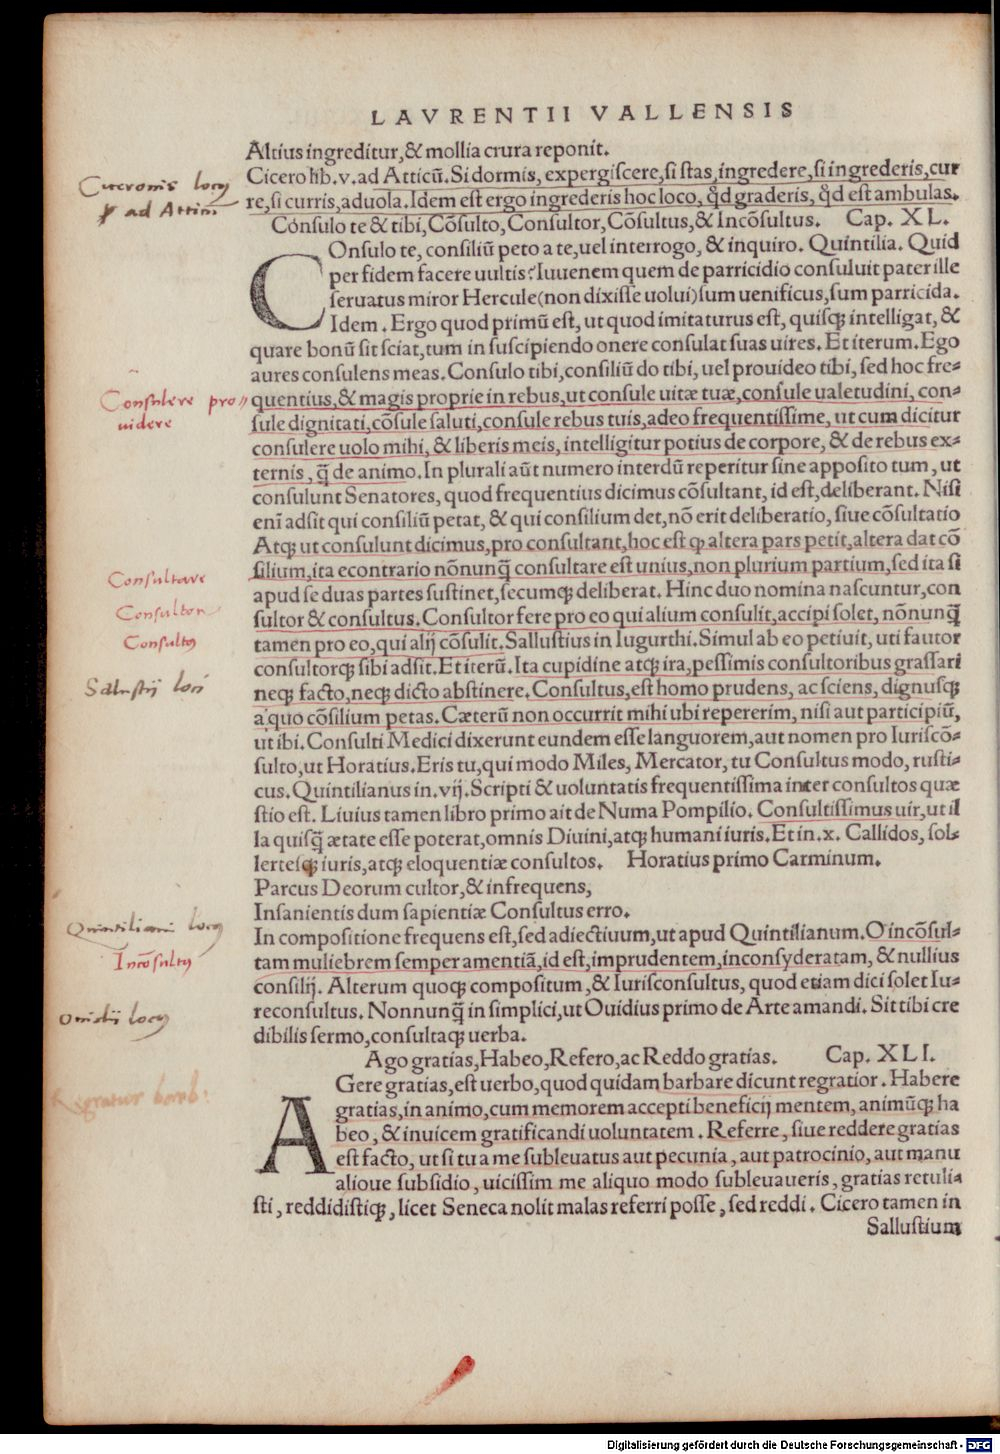 LAVRENTII VALLENSIS
Altius ingreditur,& mollia crura reponit.
Ciceronis locꝰ
ad Atticū
Cicero lib.v.ad Atticū.Si dormis, expergiſcere,ſi ſtas,ingredere,ſi ingrederis,cur
re,ſi curris,aduola.Idem eſt ergo ingrederis hoc loco, qd̄ graderis, qd̄ eſt ambulas.
Cōnſulo te & tibi,Cōſulto,Conſultor,Cōſultus,& Incōſultus. Cap. XL.
COnſulo te, conſiliū peto a te,uel interrogo, & inquiro. Quintilia. Quid
per fidem facere uultis? Iuuenem quem de parricidio conſuluit pater ille
ſeruatus miror Hercule(non dixiſſe uolui)ſum ueniſicus,ſum parricida.
Idem . Ergo quod primū eſt, ut quod imitaturus eſt, quiſqꝫ intelligat, &
quare bonū ſit ſciat,tum in ſuſcipiendo onere conſulat ſuas uires. Et iterum.Ego
aures conſulens meas. Conſulo tibi,conſiliū do tibi, uel prouideo tibi, ſed hoc fre-
Conſulere pro-
uidere
quentius,& magis proprie in rebus,ut conſule uitæ tuæ,conſule ualetudini, con-
ſule dignitati,cōſule ſaluti,conſule rebus tuis,adeo frequentiſſime, ut cum dicitur
conſulere uolo mihi, & liberis meis, intelligitur potius de corpore, & de rebus ex-
ternis , q̄ de animo.In plurali aūt numero interdū reperitur ſine appoſito tum , ut
conſulunt Senatores, quod frequentius dicimus cōſultant, id eſt,deliberant. Niſi
enī adſit qui conſiliū petat, & qui conſilium det,nō erit deliberatio, ſiue cōſultatio
Atqꝫ ut conſulunt dicimus,pro conſultant,hoc eſt ꝙ altera pars petit,altera dat cō
Conſultare
ſilium,ita econtrario nōnunq̄ conſultare eſt unius,non plurium partium,ſed ita ſi
apud ſe duas partes ſuſtinet,ſecumqꝫ deliberat. Hinc duo nomina naſcuntur,con
Conſultor
ſultor & conſultus. Conſultor fere pro eo qui alium conſulit,accipi ſolet, nōnunq̄
Conſultꝰ
tamen pro eo,qui alij cōſulit.Salluſtius in Iugurthi.Simul ab eo petiuit, uti fautor
conſultorqꝫ ſibi adſit. Et iterū. Ita cupidine atqꝫ ira,peſſimis conſultoribus graſſari
Saluſtij loci
neqꝫ facto,neqꝫ dicto abſtinere. Conſultus,eſt homo prudens, ac ſciens, dignuſqꝫ
a quo cōſilium petas. Cæterū non occurrit mihi ubi repererim, niſi aut participiū,
ut ibi. Conſulti Medici dixerunt eundem eſſe languorem,aut nomen pro Iuriſcō-
ſulto,ut Horatius.Eris tu,qui modo Miles, Mercator, tu Conſultus modo, ruſti-
cus. Quintilianus in.vij.Scripti & uoluntatis frequentiſſima inter conſultos quæ
ſtio eſt. Liuius tamen libro primo ait de Numa Pompilio. Conſultiſſimus uir,ut il
la quiſq̄ ætate eſſe poterat,omnis Diuini,atqꝫ humani iuris.Et in.x. Callidos, ſol-
lerteſqꝫ iuris,atqꝫ eloquentiæ conſultos. Horatius primo Carminum.
Parcus Deorum cultor,& infrequens,
Inſanientis dum ſapientiæ Conſultus erro.
Quintiliani locꝰ
In compoſitione frequens eſt,ſed adiectiuum,ut apud Quintilianum.O incōſul-
Incōſultꝰ
tam muliebrem ſemper amentiā,id eſt,imprudentem,inconſyderatam, & nullius
conſilij. Alterum quoqꝫ compoſitum,& Iuriſconſultus, quod etiam dici ſolet Iu-
Ouidij locꝰ
reconſultus. Nonnunq̄ in ſimplici,ut Ouidius primo de Arte amandi. Sit tibi cre
dibilis ſermo,conſultaqꝫ uerba.
Ago gratias,Habeo,Refero,ac Reddo gratias. Cap. XLI.
Regratiur barb:
AGere gratias,eſt uerbo,quod quidam barbare dicunt regratior . Habere
gratias,in animo,cum memorem accepti beneficij mentem, animūqꝫ ha
beo , & inuicem gratificandi uoluntatem . Referre, ſiue reddere gratias
eſt facto, ut ſi tu a me ſubleuatus aut pecunia , aut patrocinio, aut manu
alioue ſubſidio , uiciſſim me aliquo modo ſubleuaueris, gratias retuli-
ſti , reddidiſtiqꝫ , licet Seneca nolit malas referri poſſe , ſed reddi . Cicero tamen in
Salluſtium
Digitalisierung gefördert durch die Deutsche Forschungsgemeinschaft - DFG